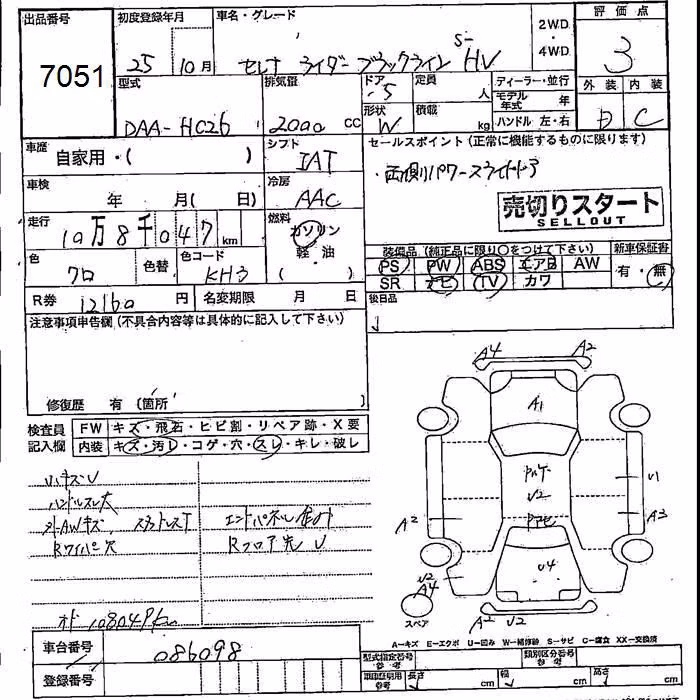 出品番号 初度登録年月 車名・グレード 2WD・4WD 評価点
7051 25年 10月 セレナ ライダー ブラックライン S-HV 3
型式 排気量 ドア 定員 ディーラー・並行 外装 内装
DAA-HC26 2000 cc 5 人 モデル年式 年 D C
形状 W 積載 kg ハンドル 左・右
車歴 自家用・( ) シフト IAT セールスポイント (正常に機能するものに限ります)
車検 年 月( 日) 冷房 AAC 両側パワースライドドア
売切りスタート
SELLOUT
走行 10万8千047km 燃料 ガソリン 軽・油 ( )
装備品 (純正品に限り○をつけて下さい) 新車保証書
PS PW ABS エアB AW 有・無
SR ナビ TV カワ
色 クロ 色替 色コード KH3
後日品
R券 12160円 名変期限 月 日
注意事項申告欄 (不具合内容等は具体的に記入して下さい)
修復歴 有 (箇所
検査員記入欄 FW キズ・飛石・ヒビ割・リペア跡・X要
内装 キズ・汚レ・コゲ・穴・スレ・キレ・破レ
小キズU
ハンドルスレ大
外AWキズ スタッドレスT エンドパネル
Rワイパー穴 Rフロア先 U
オド 108047km
A4 A2
A1
U2
U1
A2 A3
U4
U2
A4
スペア A2 U2
A-キズ E-エクボ U-凹み W-補修跡 S-サビ C-腐食 XX-交換済
車台番号 086098
登録番号
型式指定番号 参考 類別区分番号 参考
車庫証明用 参考 長さ cm 幅 cm 高さ cm